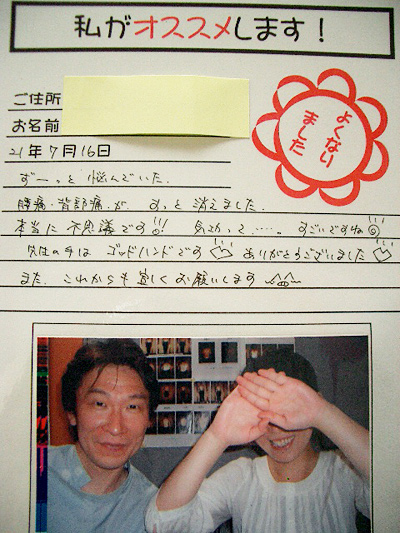 私がオススメします！
ご住所
お名前
よくなり
ました
21年7月16日
ずーっと悩んでいた、
腰痛・背部痛が、すっと消えました。
本当に不思議です!! 気功って……。すごいですね
先生の手はゴッドハンドです ありがとうございました
また、これからも宜しくお願いします